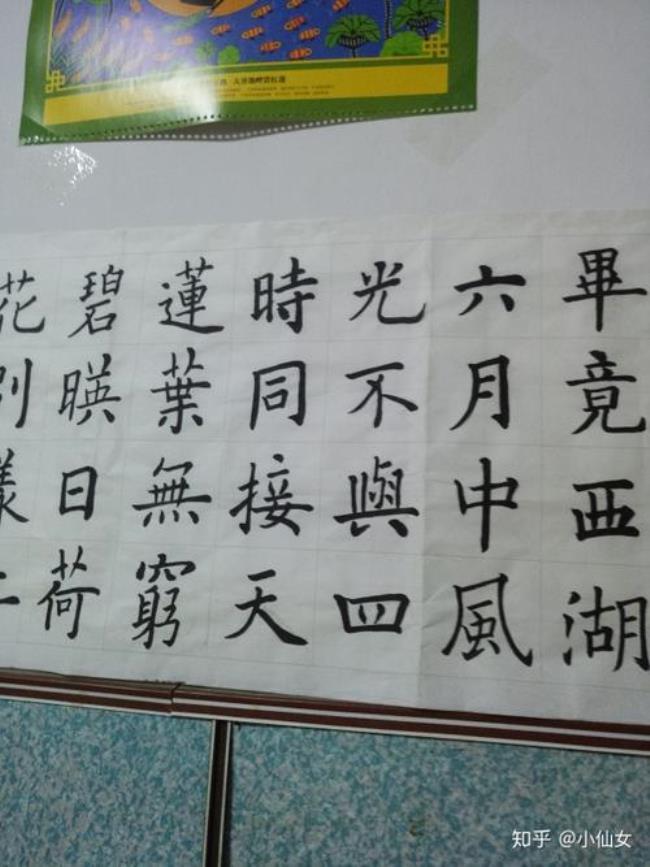 畢竟西湖
六月中風
光不與四
時同接天
蓮葉無窮
碧暎日荷
花
知乎 @小仙女